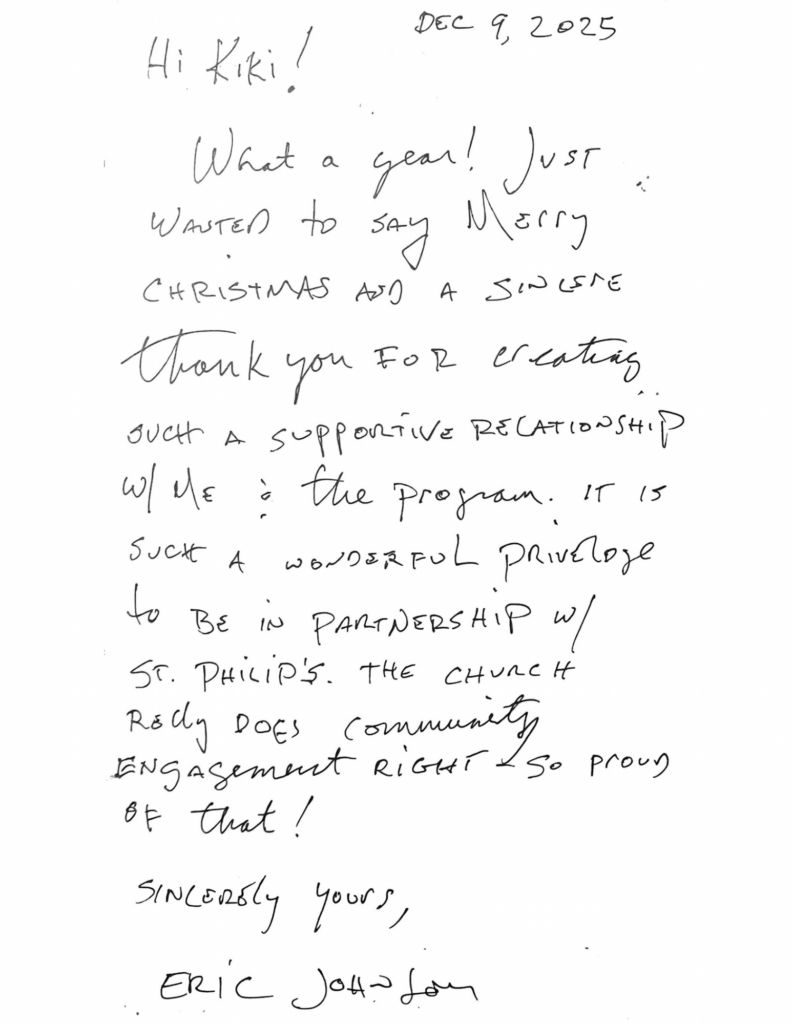 DEC 9, 2025
Hi Kiki!
What a year! Just
WANTED to SAY Merry
CHRISTMAS AND A SINCERE
thank you FOR creating
SUCH A SUPPORTIVE RELATIONSHIP
w/ ME & the program. IT IS
SUCH A WONDERFUL priveloge
to BE IN PARTNERSHIP w/
ST. PHILIP'S. THE CHURCH
Really DOES community
ENGAgement RIGHT - SO proud
OF that!
SINCERely yours,
ERIC JOHNSON